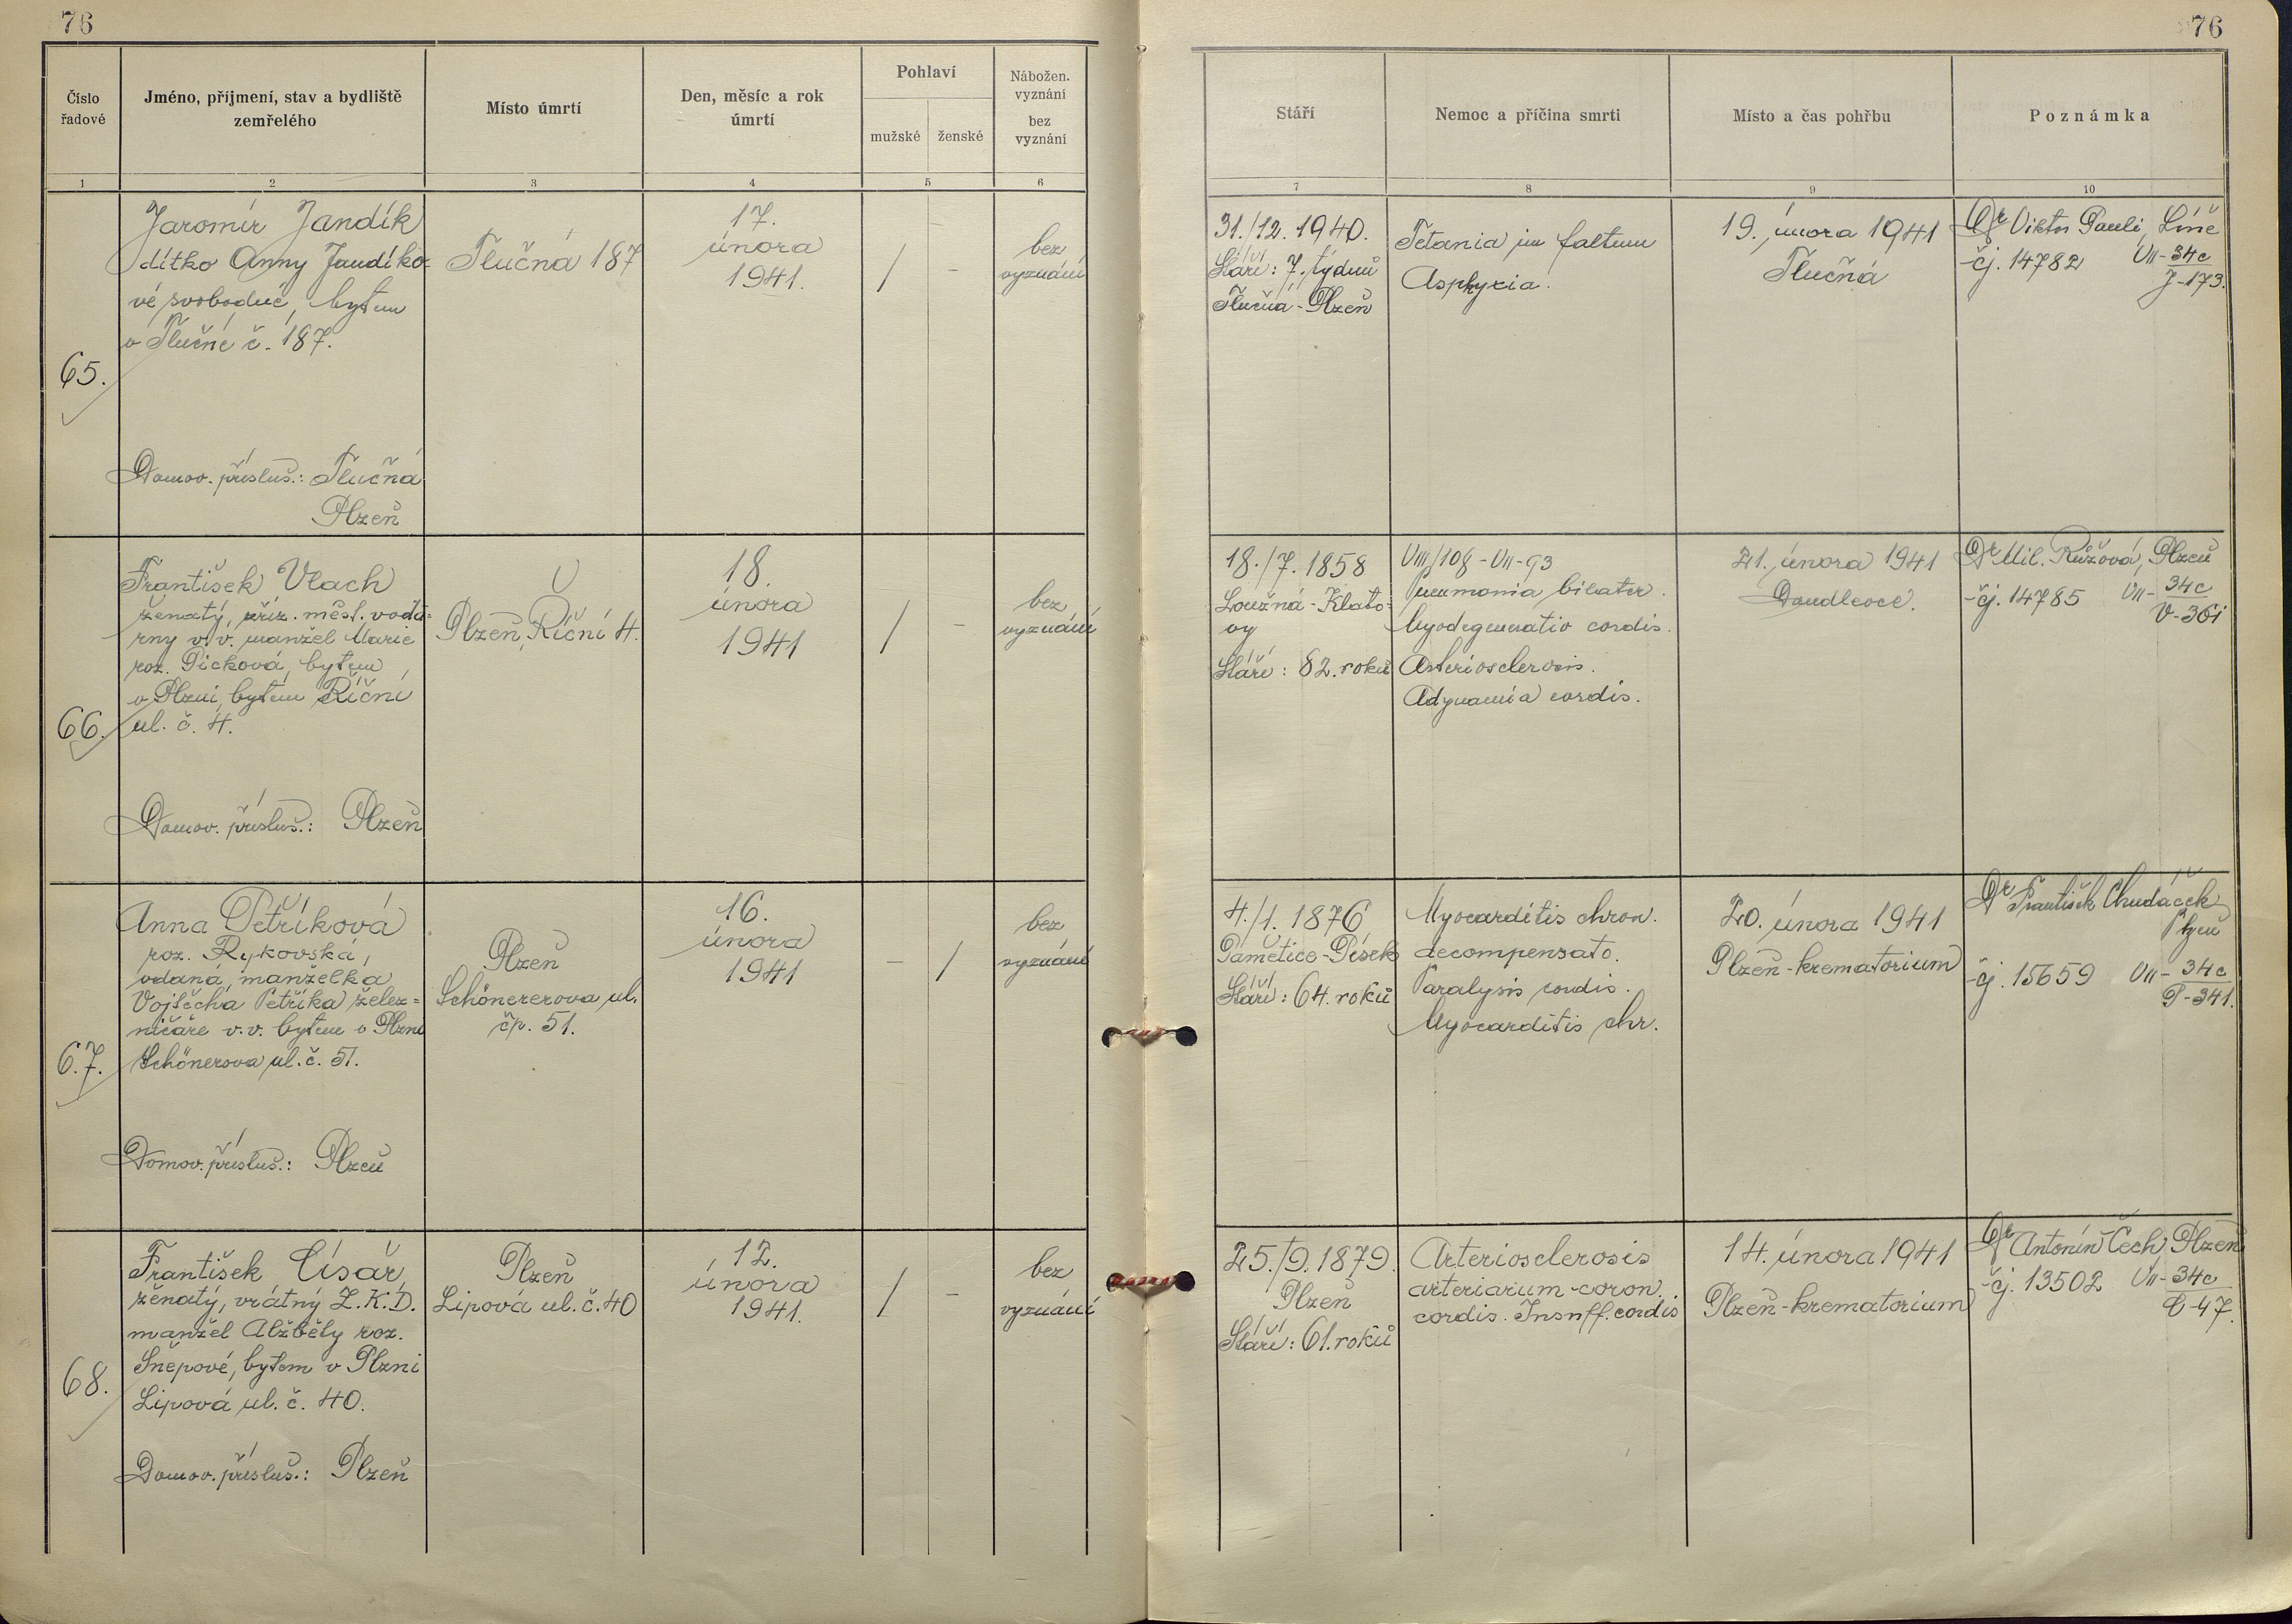 76
76
Číslo řadové
Jméno, příjmení, stav a bydliště zemřelého
Místo úmrtí
Den, měsíc a rok úmrtí
Pohlaví
mužské
ženské
Nábožen. vyznání
bez vyznání
Stáří
Nemoc a příčina smrti
Místo a čas pohřbu
Poznámka
1
2
3
4
5
6
7
8
9
10
65.
Jaromír Jandík
dítko Anny Jandíko-
vé svobodné, bytem
v Tlučné č. 187.
Domov. přísluš.: Tlučná
Plzeň
Tlučná 187
17.
února
1941.
/
-
bez
vyznání
31./12. 1940.
Stáří: 7. týdnů
Tlučná - Plzeň
Tetania
Asphyxia.
19. února 1941
Tlučná
Dr Viktor Pauli, Líně
čj. 14782 VII-34c
J-173.
66.
František Vlach
ženatý, zříz. měst. vodá-
rny v.v. manžel Marie
roz. Picková, bytem
v Plzni, bytem Říční
ul. č. 4.
Domov. přísluš.: Plzeň
Plzeň, Říční 4.
18.
února
1941
/
-
bez
vyznání
18./7. 1858
Loužná - Klato-
vy
Stáří: 82. roků
VIII/108 - VII-93
Pneumonia bilater.
Myodegeneratio cordis.
Arteriosclerosis.
Adynamia cordis.
21. února 1941
Doudlevce.
Dr Mil. Růžová, Plzeň
čj. 14785 VII-34c
V-361
67.
Anna Petříková
roz. Rykovská,
vdaná, manželka
Vojtěcha Petříka želez=
ničáře v.v. bytem v Plzni
Schönerova ul. č. 51.
Domov. přísluš.: Plzeň
Plzeň
Schönererova ul.
čp. 51.
16.
února
1941
-
/
bez
vyznání
4./1. 1876
Pamětice - Písek
Stáří: 64. roků
Myocarditis chron.
decompensato.
Paralysis cordis.
Myocarditis chr.
20. února 1941
Plzeň - krematorium
Dr František Chudáček
Plzeň
čj. 15659 VII-34c
P-341.
68.
František Císař,
ženatý, vrátný Z.K.D.
manžel Alžběty roz.
Šnepové, bytem v Plzni
Lipová ul. č. 40.
Domov. přísluš.: Plzeň
Plzeň
Lipová ul. č. 40
12.
února
1941.
/
-
bez
vyznání
25./9. 1879.
Plzeň
Stáří: 61. roků
Arteriosclerosis
arteriarum coron.
cordis. Insuff. cordis
14. února 1941
Plzeň - krematorium
Dr Antonín Čech, Plzeň
čj. 13502 VII-34c